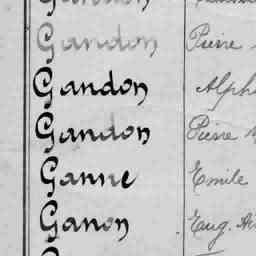 Gandon Pierre
Gandon Alph
Gandon Pierre
Ganne Emile
Ganon Eug.